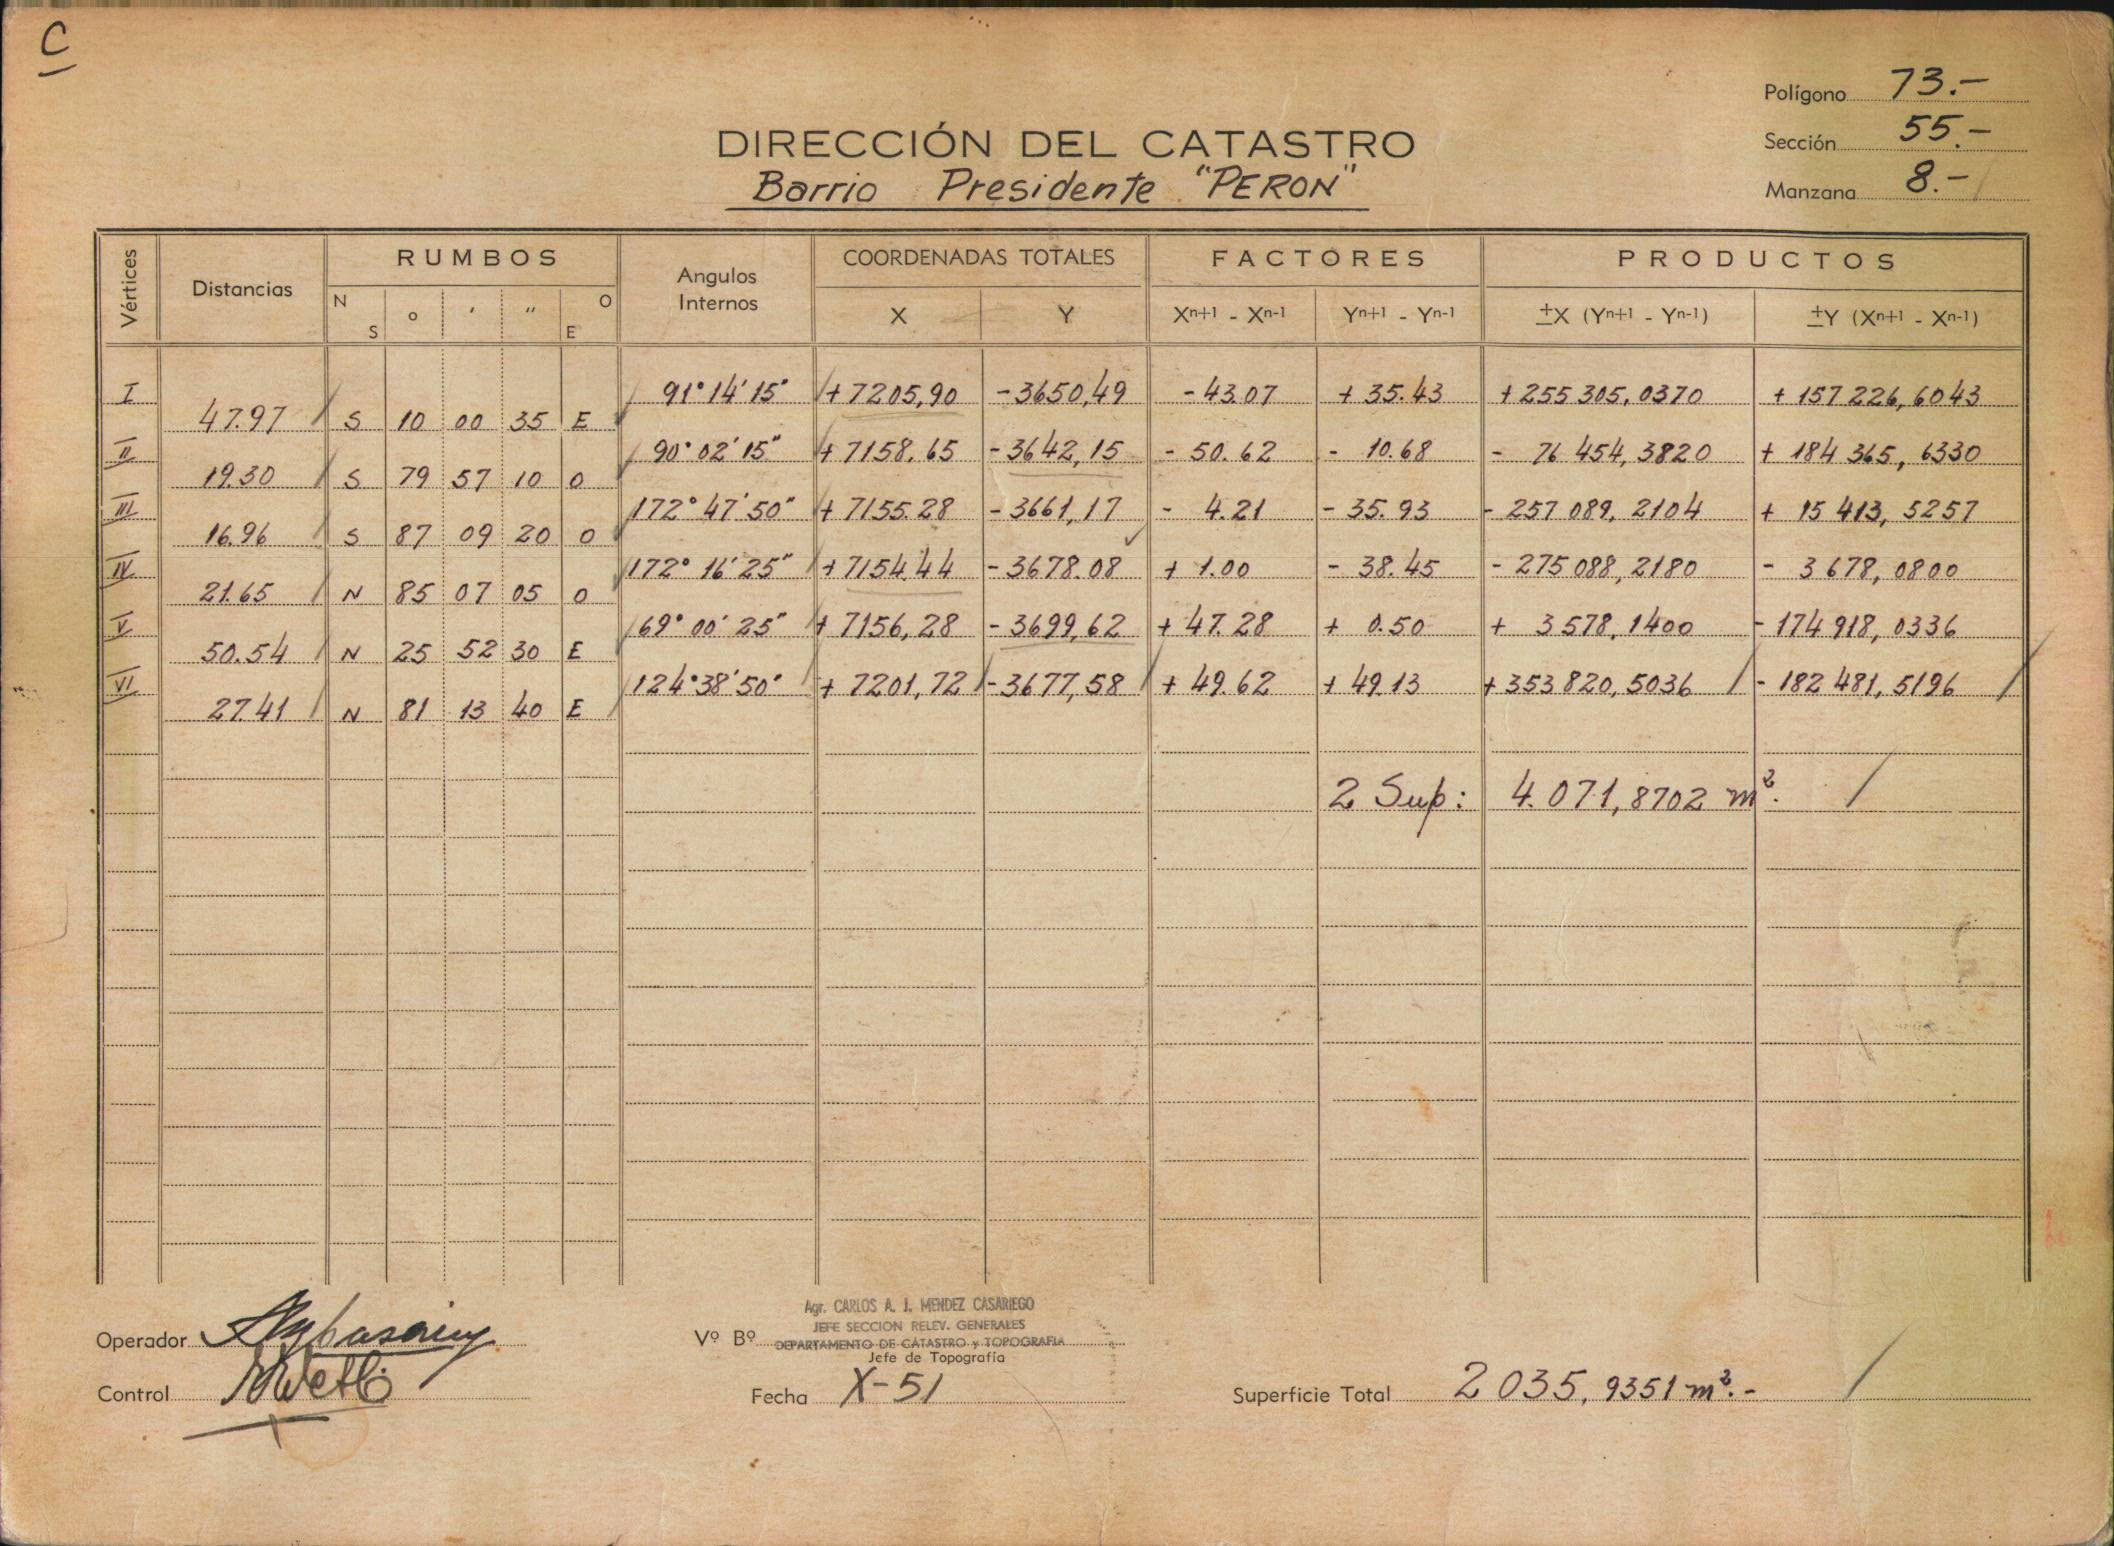 C
Polígono 73.-
Sección 55.-
Manzana 8.-
DIRECCIÓN DEL CATASTRO
Barrio Presidente "PERON"
Vértices Distancias RUMBOS Angulos Internos COORDENADAS TOTALES FACTORES PRODUCTOS
N S o ' " O E X Y Xn+1 - Xn-1 Yn+1 - Yn-1 ±X (Yn+1 - Yn-1) ±Y (Xn+1 - Xn-1)
I 91° 14' 15" +7205,90 -3650,49 -43.07 +35.43 +255 305,0370 +157 226,6043
47.97 S 10 00 35 E
II 90° 02' 15" +7158.65 -3642,15 -50.62 -10.68 -76 454,3820 +184 365,6330
19.30 S 79 57 10 O
III 172° 47' 50" +7155.28 -3661,17 -4.21 -35.93 -257 089,2104 +15 413,5257
16.96 S 87 09 20 O
IV 172° 16' 25" +7154.44 -3678.08 +1.00 -38.45 -275 088,2180 -3 678,0800
21.65 N 85 07 05 O
V 69° 00' 25" +7156,28 -3699,62 +47.28 +0.50 +3 578,1400 -174 918,0336
50.54 N 25 52 30 E
VI 124° 38' 50" +7201,72 -3677,58 +49.62 +49.13 +353 820,5036 -182 481,5196
27.41 N 81 13 40 E
2 Sup: 4.071,8702 m².
Agr. CARLOS A. J. MENDEZ CASARIEGO
JEFE SECCION RELEV. GENERALES
Operador Vº Bº DEPARTAMENTO DE CATASTRO y TOPOGRAFIA
Jefe de Topografía
Control Fecha X-51 Superficie Total 2 035,9351 m².-